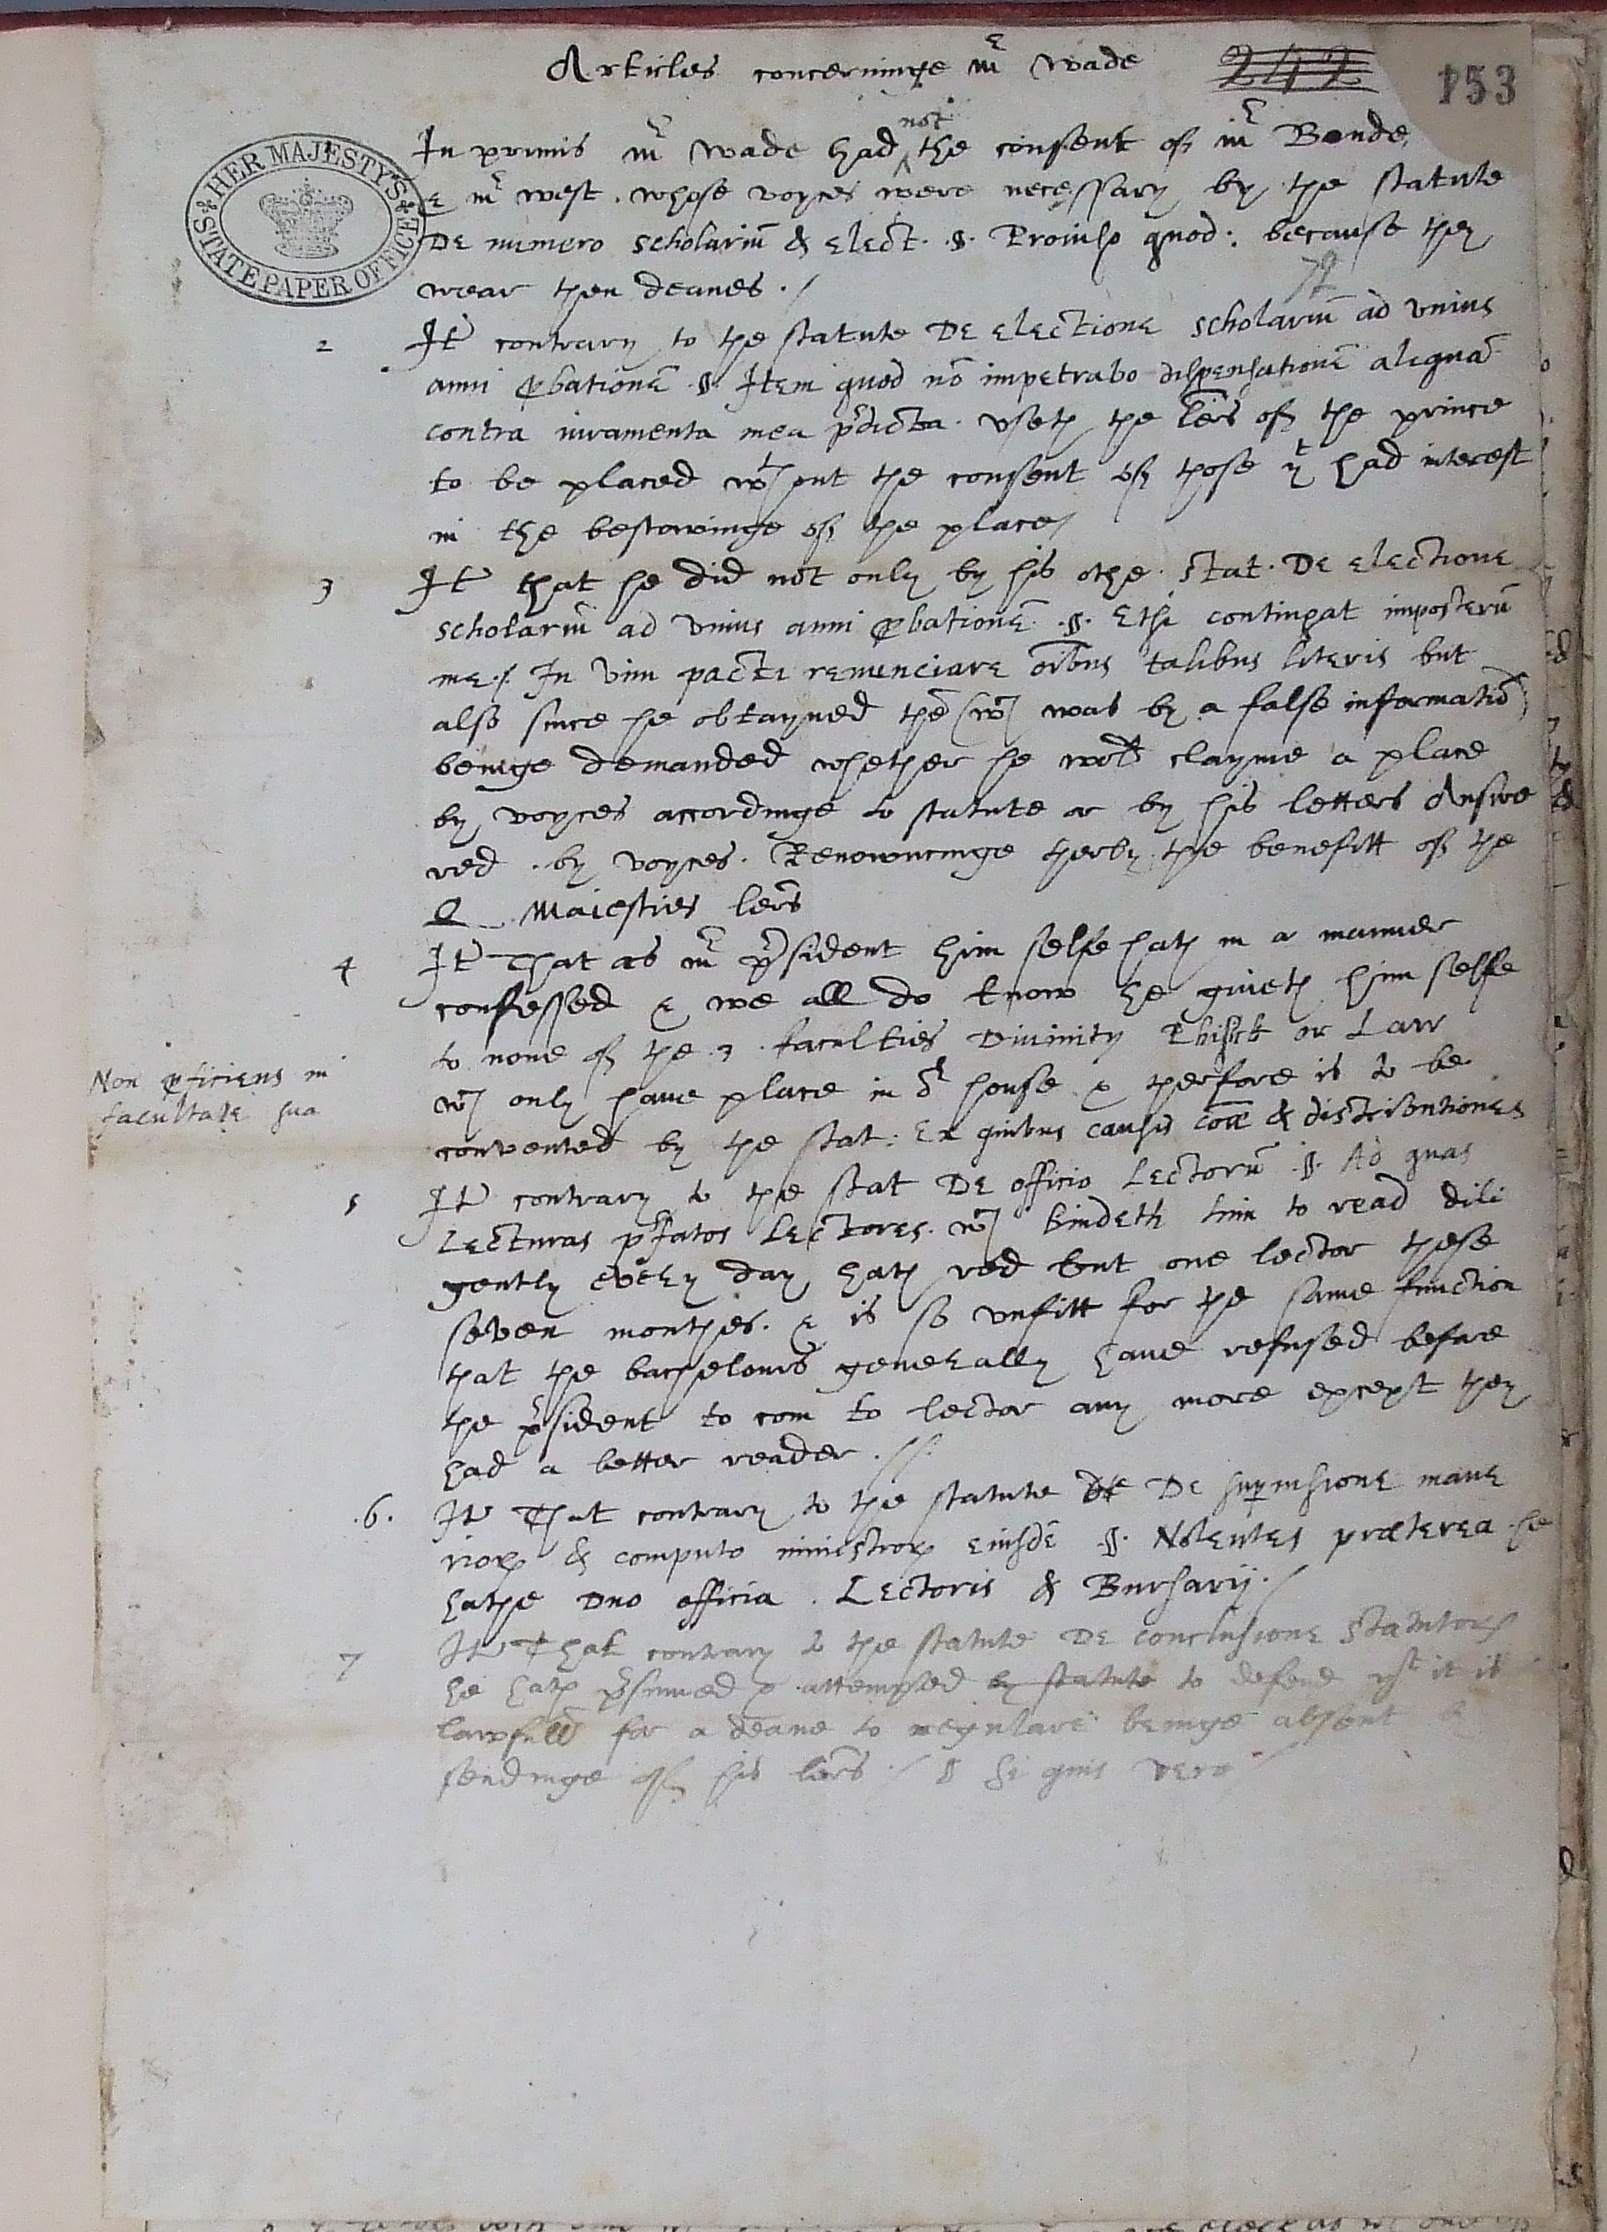 Articles concerninge mr wade
242
153
In primis mr wade had not the consent of mr Bonde
& mr west . whose voyces were necessary by the statute
De numero scholariū & Elect. .§. Proviso quod: because they
wear then deanes ./
72
2 It contrary to the statute De Electione scholariū ad unius
anni pbationē .§. Item quod nō impetrabo dispensationē aliquā
contra iuramenta mea pdicta. useth the lers of the prince
to be placed wthout the consent of those yt had interest
in the bestowinge of the place/
3 It that he did not only by his othe. stat. De Electione
scholariū ad unius anni pbationē .§. Etsi contingat imposterū
me./ In vim pacti renunciare oibus talibus literis but
also since he obtayned thē (wch was by a false informatiō)
beinge demanded whether he wold clayme a place
by voyces accordinge to statute or by his letters Answe
red . by voyces. Renowncinge therby the benefitt of the
Q Maiesties lers
4 It That as mr president him selfe hath in a manner
confessed & we all do know he giveth him selfe
to none of the .3. faculties Divinity Phisick or Law
wch only have place in or house & therfore is to be
convented by the stat: Ex quibus causis & distributiones
Non pficiens in
facultate sua
5 It contrary to the stat De officio Lectorū .§. Ad quas
Lecturas pfatos Lectores. wch bindeth him to read dili
gently every day hath red but one lector these
seven monthes. & is so unfitt for the same function
that the bachelours generally have refused before
the president to com to lector any more except they
had a better reader ./.
.6. It That contrary to the statute de De supvisione mane
riorū & computo ministrorū eiusdē .§. Nolentes præterea he
hathe duo officia . Lectoris & Bursarij./
7 It That contrary to the statute De conclusione statutorū
he hath presumed & attempted by statute to defend yt it is
lawfull for a deane to regulare beinge absent b
sendinge of his lers ./ § Si quis vero
HER MAJESTY'S
STATE PAPER OFFICE